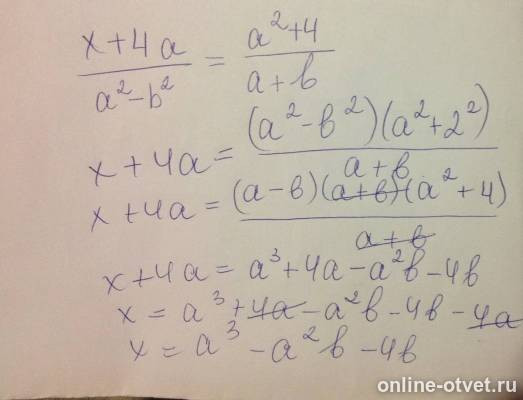 x+4a / a²-b² = a²+4 / a+b
x+4a = (a²-b²)(a²+2²) / a+b
x+4a = (a-b)(a+b)(a²+4) / a+b
x+4a = a³+4a-a²b-4b
x = a³+4a-a²b-4b-4a
x = a³-a²b-4b
online-otvet.ru